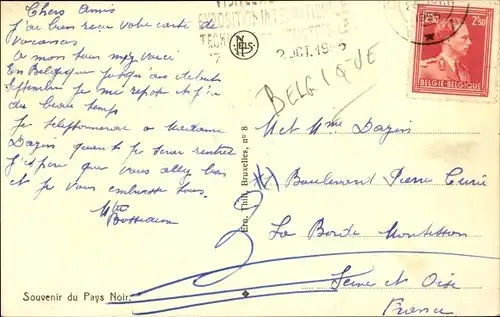 Chers Amis
J'ai bien reçu votre carte de
vacances
A mon tour me voici
En Belgique jusque au début
Septembre je me repose et j'ai
du beau temps
Je téléphonerai à Madame
Dazin quand je serai rentré
J'espère que vous allez bien
et je vous embrasse tous.
EXPOSITION INTERNATIONALE
NELS
2 OCT. 19
BELGIQUE
2F50 2F50
BELGIE BELGIQUE
Ern. Thill, Bruxelles, n° 8
M et Mme Dazin
Boulevard Pierre Curie
La Borde Montesson
Seine et Oise
France
Souvenir du Pays Noir.